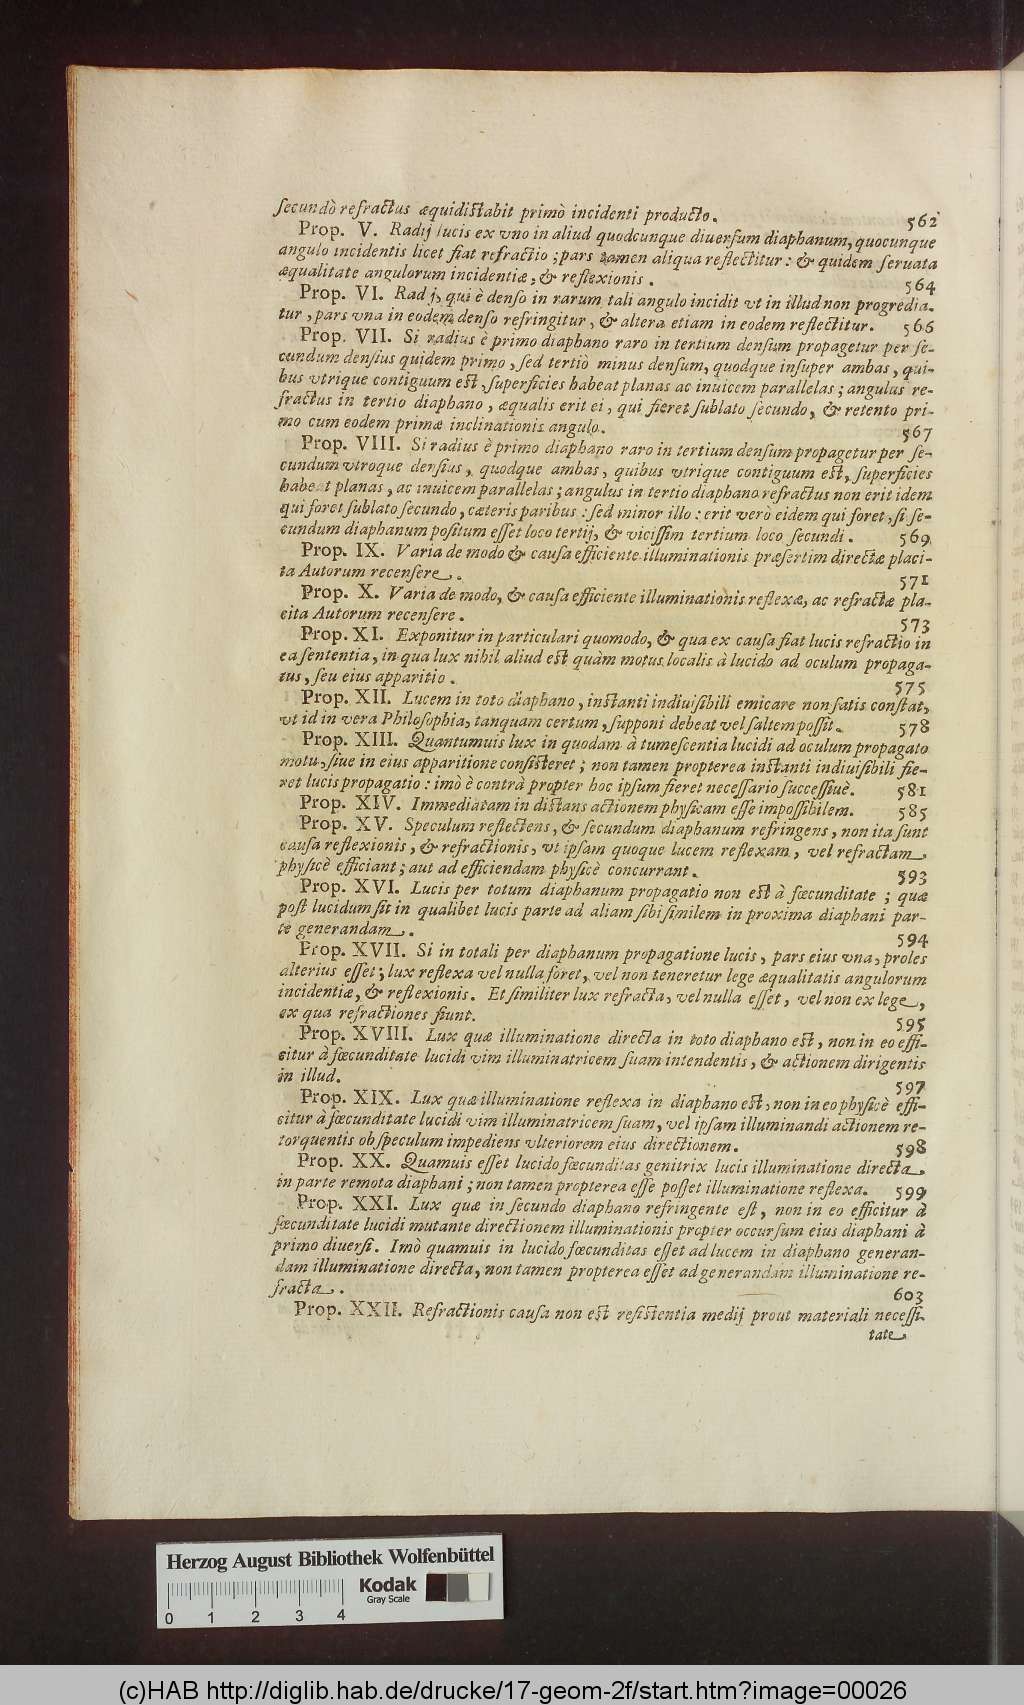 secundò refractus æquidistabit primò incidenti producto. 562
Prop. V. Radij lucis ex vno in aliud quodcunque diuersum diaphanum, quocunque
angulo incidentis licet fiat refractio; pars tamen aliqua reflectitur: & quidem seruata
æqualitate angulorum incidentiæ, & reflexionis. 564
Prop. VI. Radij, qui è denso in rarum tali angulo incidit vt in illud non progredia-
tur, pars vna in eodem denso refringitur, & altera etiam in eodem reflectitur. 566
Prop. VII. Si radius è primo diaphano raro in tertium densum propagetur per se-
cundum densius quidem primo, sed tertiò minus densum, quodque insuper ambas, qui-
bus vtrique contiguum est, superficies habeat planas ac inuicem parallelas; angulus re-
fractus in tertio diaphano, æqualis erit ei, qui fieret sublato secundo, & retento pri-
mo cum eodem primæ inclinationis angulo. 567
Prop. VIII. Si radius è primo diaphano raro in tertium densum propagetur per se-
cundum vtroque densius, quodque ambas, quibus vtrique contiguum est, superficies
habeat planas, ac inuicem parallelas; angulus in tertio diaphano refractus non erit idem
qui foret sublato secundo, cæteris paribus: sed minor illo: erit verò eidem qui foret, si se-
cundum diaphanum positum esset loco tertij, & vicissim tertium loco secundi. 569
Prop. IX. Varia de modo & causa efficiente illuminationis præsertim directæ placi-
ta Autorum recensere. 571
Prop. X. Varia de modo, & causa efficiente illuminationis reflexæ, ac refractæ pla-
cita Autorum recensere. 573
Prop. XI. Exponitur in particulari quomodo, & qua ex causa fiat lucis refractio in
ea sententia, in qua lux nihil aliud est quàm motus localis à lucido ad oculum propaga-
tus, seu eius apparitio. 575
Prop. XII. Lucem in toto diaphano, instanti indiuisibili emicare non satis constat,
vt id in vera Philosophia, tanquam certum, supponi debeat vel saltem possit. 578
Prop. XIII. Quantumuis lux in quodam à tumescentia lucidi ad oculum propagato
motu, siue in eius apparitione consisteret; non tamen propterea instanti indiuisibili fie-
ret lucis propagatio: imò è contrà propter hoc ipsum fieret necessario successiuè. 581
Prop. XIV. Immediatam in distans actionem physicam esse impossibilem. 585
Prop. XV. Speculum reflectens, & secundum diaphanum refringens, non ita sunt
causa reflexionis, & refractionis, vt ipsam quoque lucem reflexam, vel refractam
physicè efficiant; aut ad efficiendam physicè concurrant. 593
Prop. XVI. Lucis per totum diaphanum propagatio non est à fœcunditate; quæ
post lucidum sit in qualibet lucis parte ad aliam sibi similem in proxima diaphani par-
te generandam. 594
Prop. XVII. Si in totali per diaphanum propagatione lucis, pars eius vna, proles
alterius esset; lux reflexa vel nulla foret, vel non teneretur lege æqualitatis angulorum
incidentiæ, & reflexionis. Et similiter lux refracta, vel nulla esset, vel non ex lege,
ex qua refractiones fiunt. 595
Prop. XVIII. Lux quæ illuminatione directa in toto diaphano est, non in eo effi-
citur à fœcunditate lucidi vim illuminatricem suam intendentis, & actionem dirigentis
in illud. 597
Prop. XIX. Lux quæ illuminatione reflexa in diaphano est, non in eo physicè effi-
citur à fœcunditate lucidi vim illuminatricem suam, vel ipsam illuminandi actionem re-
torquentis ob speculum impediens vlteriorem eius directionem. 598
Prop. XX. Quamuis esset lucido fœcunditas genitrix lucis illuminatione directa
in parte remota diaphani; non tamen propterea esse posset illuminatione reflexa. 599
Prop. XXI. Lux quæ in secundo diaphano refringente est, non in eo efficitur à
fœcunditate lucidi mutante directionem illuminationis propter occursum eius diaphani à
primo diuersi. Imò quamuis in lucido fœcunditas esset ad lucem in diaphano generan-
dam illuminatione directa, non tamen propterea esset ad generandam illuminatione re-
fracta. 603
Prop. XXII. Refractionis causa non est resistentia medij prout materiali necessi-
tate
Herzog August Bibliothek Wolfenbüttel
Kodak
Gray Scale
0 1 2 3 4
(c)HAB http://diglib.hab.de/drucke/17-geom-2f/start.htm?image=00026